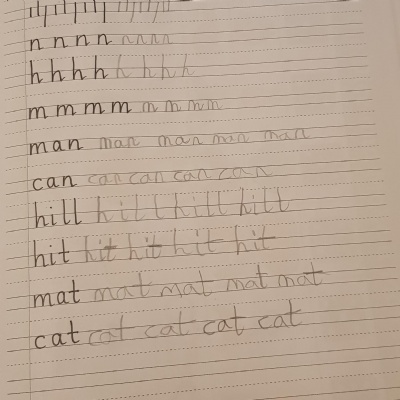 n n n n n n n n
h h h h h h h h
m m m m m m m m
man man man man man
can can can can can
hill hill hill hill
hit hit hit hit hit
mat mat mat mat mat
cat cat cat cat cat